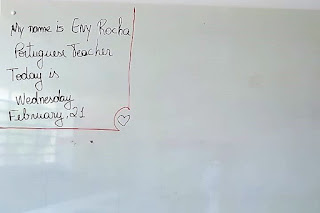 My name is Eny Rocha
Portuguese Teacher
Today is
Wednesday
February, 21